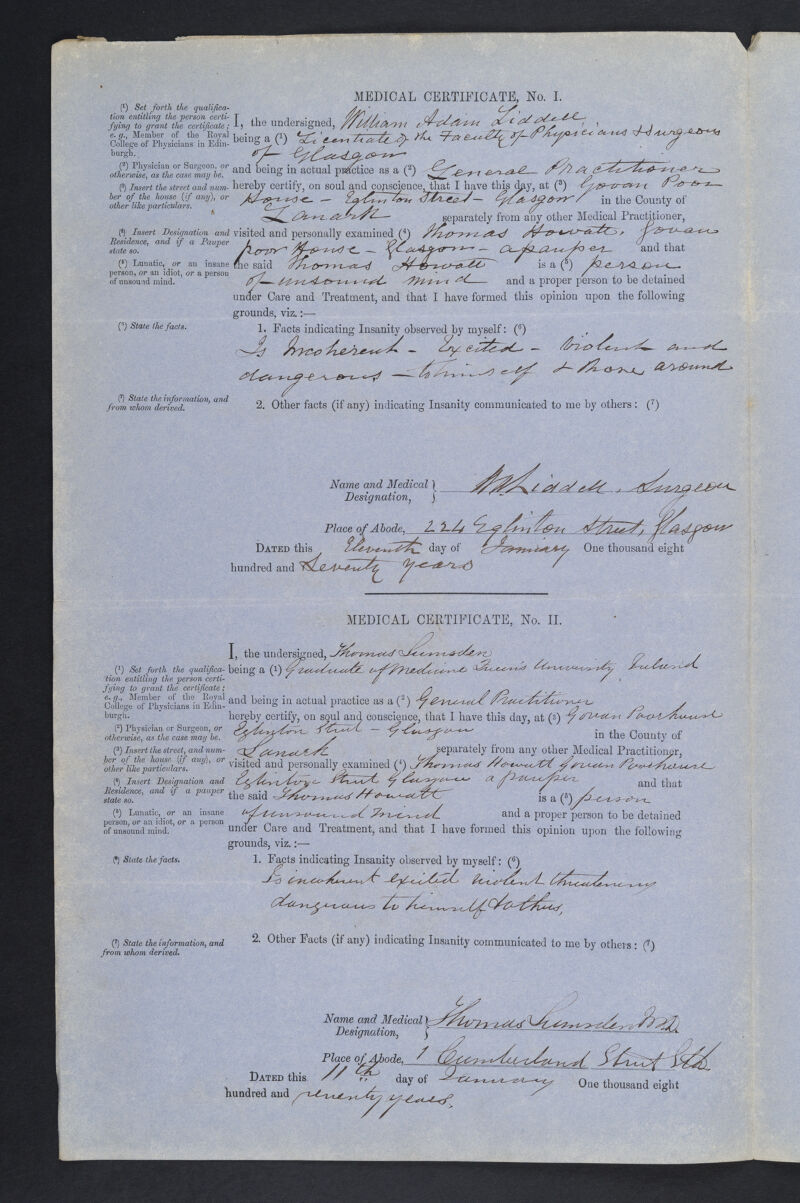 MEDICAL CERTIFICATE, No. I.
(¹) Set forth the qualifica-
tion entitling the person certi-
fying to grant the certificate;
e.g., Member of the Royal
College of Physicians in Edin-
burgh.
(²) Physician or Surgeon, or
otherwise, as the case may be.
(³) Insert the street and num-
ber of the house (if any), or
other like particulars.
(⁴) Insert Designation and
Residence, and if a Pauper
state so.
(⁵) Lunatic, or an insane
person, or an idiot, or a person
of unsound mind.
(⁶) State the facts.
(⁷) State the information, and
from whom derived.
I, the undersigned, William Adam Liddell,
being a (¹) Licentiate of the Faculty of Physicians & Surgeons
of Glasgow
and being in actual practice as a (²) General Practitioner
hereby certify, on soul and conscience, that I have this day, at (³) Govan Poor
House – Eglinton Street – Glasgow in the County of
Lanark separately from any other Medical Practitioner,
visited and personally examined (⁴) Thomas Howatt, Govan
Poor House – Glasgow – a pauper and that
the said Thomas Howatt is a (⁵) person
of unsound mind and a proper person to be detained
under Care and Treatment, and that I have formed this opinion upon the following
grounds, viz.:—
1. Facts indicating Insanity observed by myself: (⁶)
Is Incoherent – Excited – Violent and
dangerous – to himself & those around
2. Other facts (if any) indicating Insanity communicated to me by others: (⁷)
Name and Medical Designation, } Wm Liddell, Surgeon
Place of Abode, 224 Eglinton Street, Glasgow
DATED this Eleventh day of January One thousand eight
hundred and Seventy years
MEDICAL CERTIFICATE, No. II.
(¹) Set forth the qualifica-
tion entitling the person certi-
fying to grant the certificate;
e.g., Member of the Royal
College of Physicians in Edin-
burgh.
(²) Physician or Surgeon, or
otherwise, as the case may be.
(³) Insert the street, and num-
ber of the house (if any), or
other like particulars.
(⁴) Insert Designation and
Residence, and if a pauper
state so.
(⁵) Lunatic, or an insane
person, or an idiot, or a person
of unsound mind.
(⁶) State the facts.
(⁷) State the information, and
from whom derived.
I, the undersigned, Thomas Lumsden
being a (¹) Graduate of Medicine Queen's University Ireland
and being in actual practice as a (²) General Practitioner
hereby certify, on soul and conscience, that I have this day, at (³) Govan Poorhouse
Eglinton Street – Glasgow in the County of
Lanark separately from any other Medical Practitioner,
visited and personally examined (⁴) Thomas Howatt Govan Poorhouse
Eglinton Street Glasgow a pauper and that
the said Thomas Howatt is a (⁵) person
of unsound mind and a proper person to be detained
under Care and Treatment, and that I have formed this opinion upon the following
grounds, viz.:—
1. Facts indicating Insanity observed by myself: (⁶)
Is incoherent excited violent threatening
dangerous to himself & others,
2. Other Facts (if any) indicating Insanity communicated to me by others: (⁷)
Name and Medical Designation, } Thomas Lumsden M.D.
Place of Abode, 1 Cumberland Street
DATED this 11th day of January One thousand eight
hundred and seventy years.